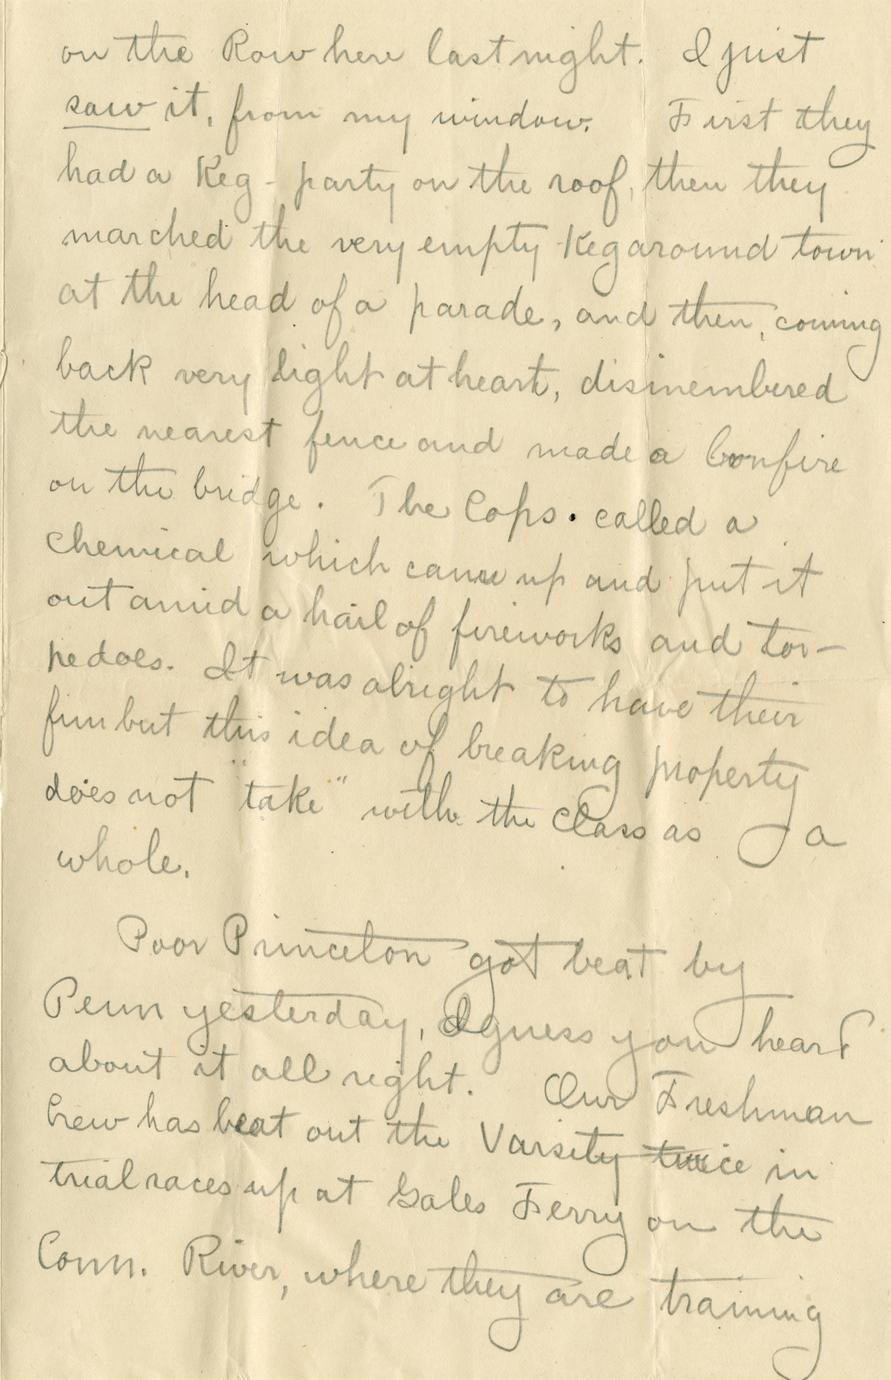 on the Row here last night. I just
saw it, from my window. First they
had a Keg-party on the roof, then they
marched the very empty Keg around town
at the head of a parade, and then, coming
back very light at heart, dismembered
the nearest fence and made a bonfire
on the bridge. The Cops. called a
Chemical which came up and put it
out amid a hail of fireworks and tor-
pedoes. It was alright to have their
fun but this idea of breaking property
does not "take" with the class as a
whole.
Poor Princeton got beat by
Penn yesterday, I guess you heard
about it all right. Our Freshman
Crew has beat out the Varsity twice in
trial races up at Gales Ferry on the
Conn. River, where they are training